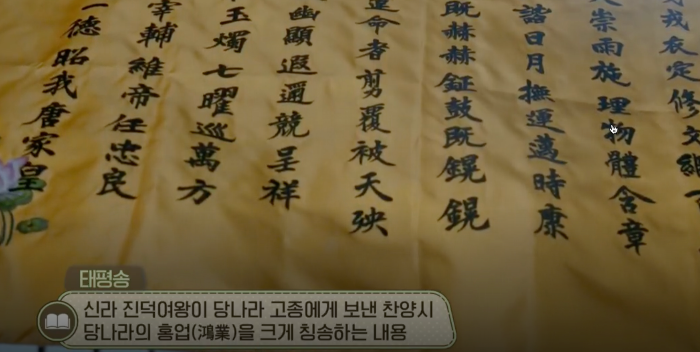 戎衣定修文
崇雨施理物體含章
諧日月撫運邁時康
既赫赫鉦鼓既鍠鍠
命者剪覆被天殃
幽顯遐邇競呈祥
玉燭七曜巡萬方
宰輔維帝任忠良
一德昭我唐家皇
태평송
신라 진덕여왕이 당나라 고종에게 보낸 찬양시
당나라의 홍업(鴻業)을 크게 칭송하는 내용